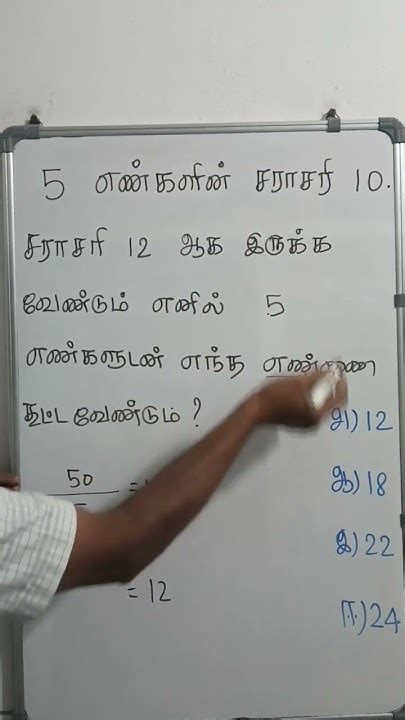 5 எண்களின் சராசரி 10.
சராசரி 12 ஆக இருக்க
வேண்டும் எனில் 5
எண்களுடன் எந்த
கூட்ட வேண்டும் ?
அ) 12
50
=
ஆ) 18
இ) 22
= 12
ஈ) 24